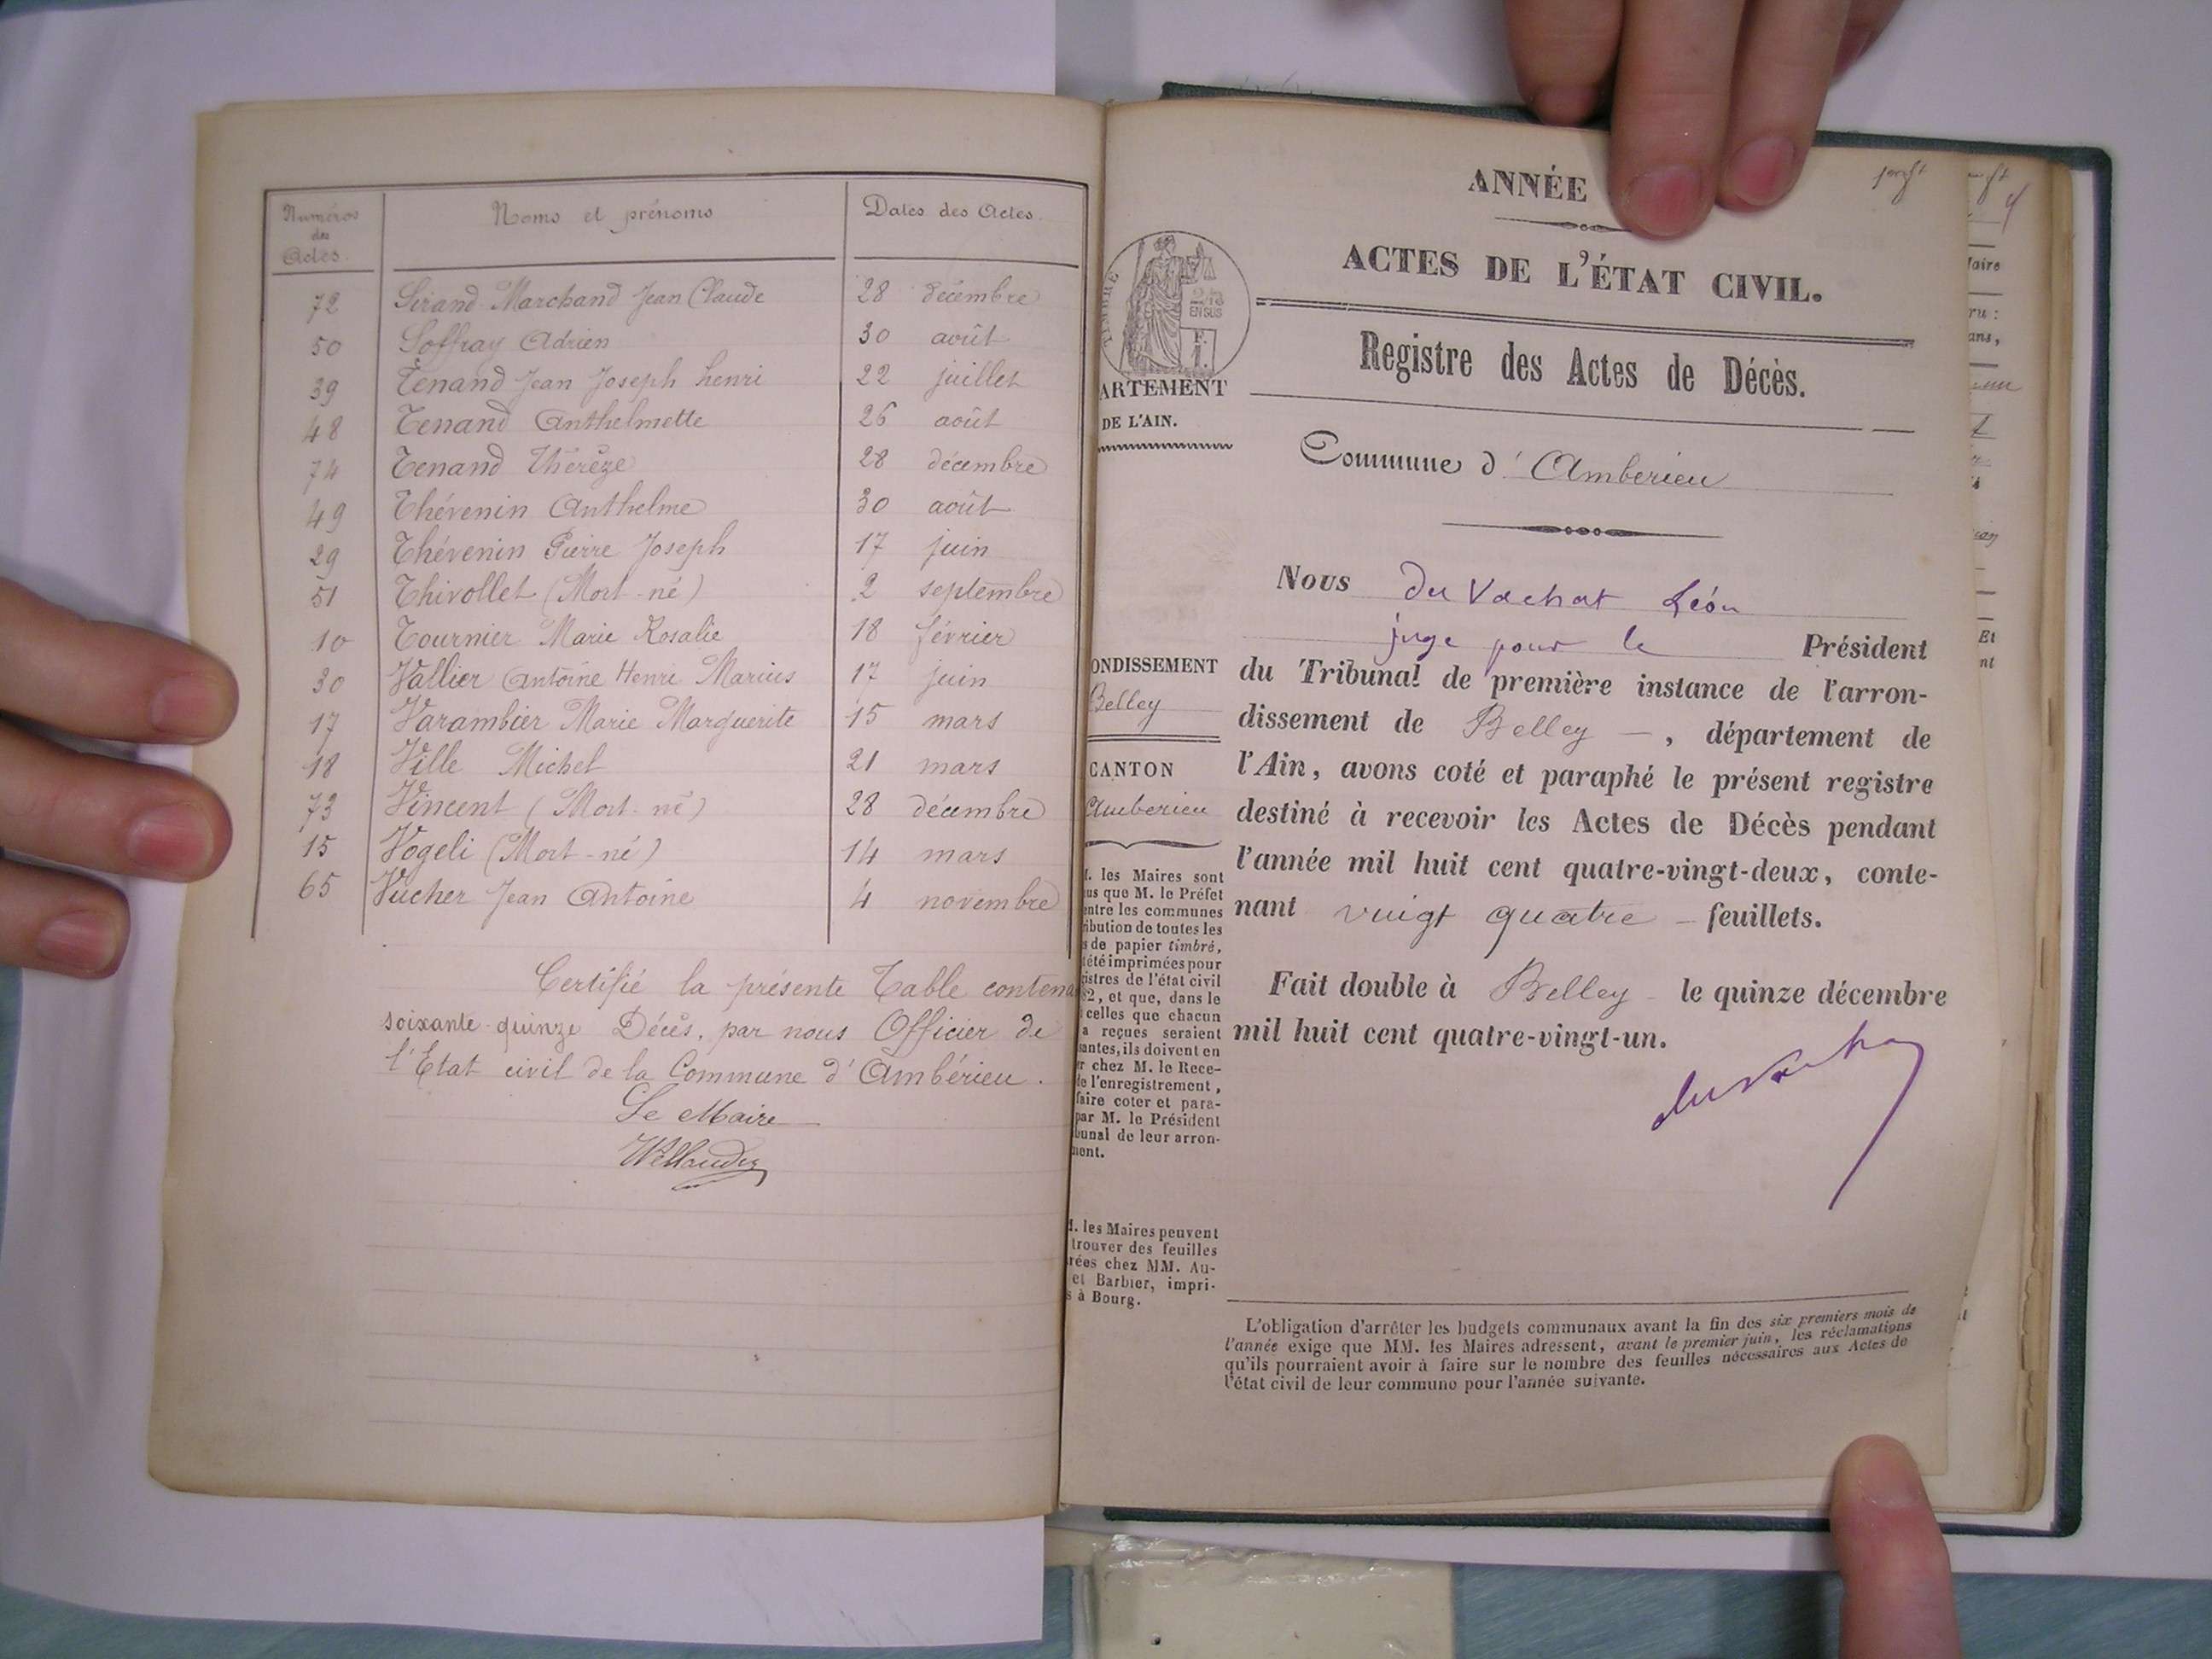 Numéros des Actes. Noms et prénoms Dates des Actes.
72 Sirand-Marchand Jean Claude 28 décembre
50 Soffray Adrien 30 août
39 Tenand Jean Joseph henri 22 juillet
48 Tenand Anthelmette 26 août
74 Tenand Thérèze 28 décembre
49 Thévenin Anthelme 30 août
29 Thévenin Pierre Joseph 17 juin
51 Thivollet (Mort-né) 2 septembre
10 Tournier Marie Rosalie 18 février
30 Vallier Antoine Henri Marius 17 juin
17 Varambier Marie Marguerite 15 mars
18 Ville Michel 21 mars
73 Vincent (Mort-né) 28 décembre
15 Vogeli (Mort-né) 14 mars
65 Vucher Jean Antoine 4 novembre
Certifié la présente Table contena
soixante-quinze Décès, par nous Officier de
l'Etat civil de la Commune d'Ambérieu.
Le Maire
ANNÉE
ACTES DE L'ÉTAT CIVIL.
TIMBRE
2/10
EN SUS
F.
1.
ARTEMENT
DE L'AIN.
Registre des Actes de Décès.
Commune d'Amberieu
Nous du Vachat Léon
juge pour le Président
du Tribunal de première instance de l'arron-
dissement de Belley —, département de
l'Ain, avons coté et paraphé le présent registre
destiné à recevoir les Actes de Décès pendant
l'année mil huit cent quatre-vingt-deux, conte-
nant vingt quatre - feuillets.
Fait double à Belley - le quinze décembre
mil huit cent quatre-vingt-un.
ONDISSEMENT
Belley
CANTON
Amberieu
M. les Maires sont
us que M. le Préfet
entre les communes
ibution de toutes les
s de papier timbré,
été imprimées pour
istres de l'état civil
82, et que, dans le
celles que chacun
a reçues seraient
santes, ils doivent en
r chez M. le Rece-
de l'enregistrement,
faire coter et para-
par M. le Président
bunal de leur arron-
ment.
M. les Maires peuvent
trouver des feuilles
rées chez MM. Au-
et Barbier, impri-
s à Bourg.
L'obligation d'arrêter les budgets communaux avant la fin des six premiers mois de
l'année exige que MM. les Maires adressent, avant le premier juin, les réclamations
qu'ils pourraient avoir à faire sur le nombre des feuilles nécessaires aux Actes de
l'état civil de leur commune pour l'année suivante.